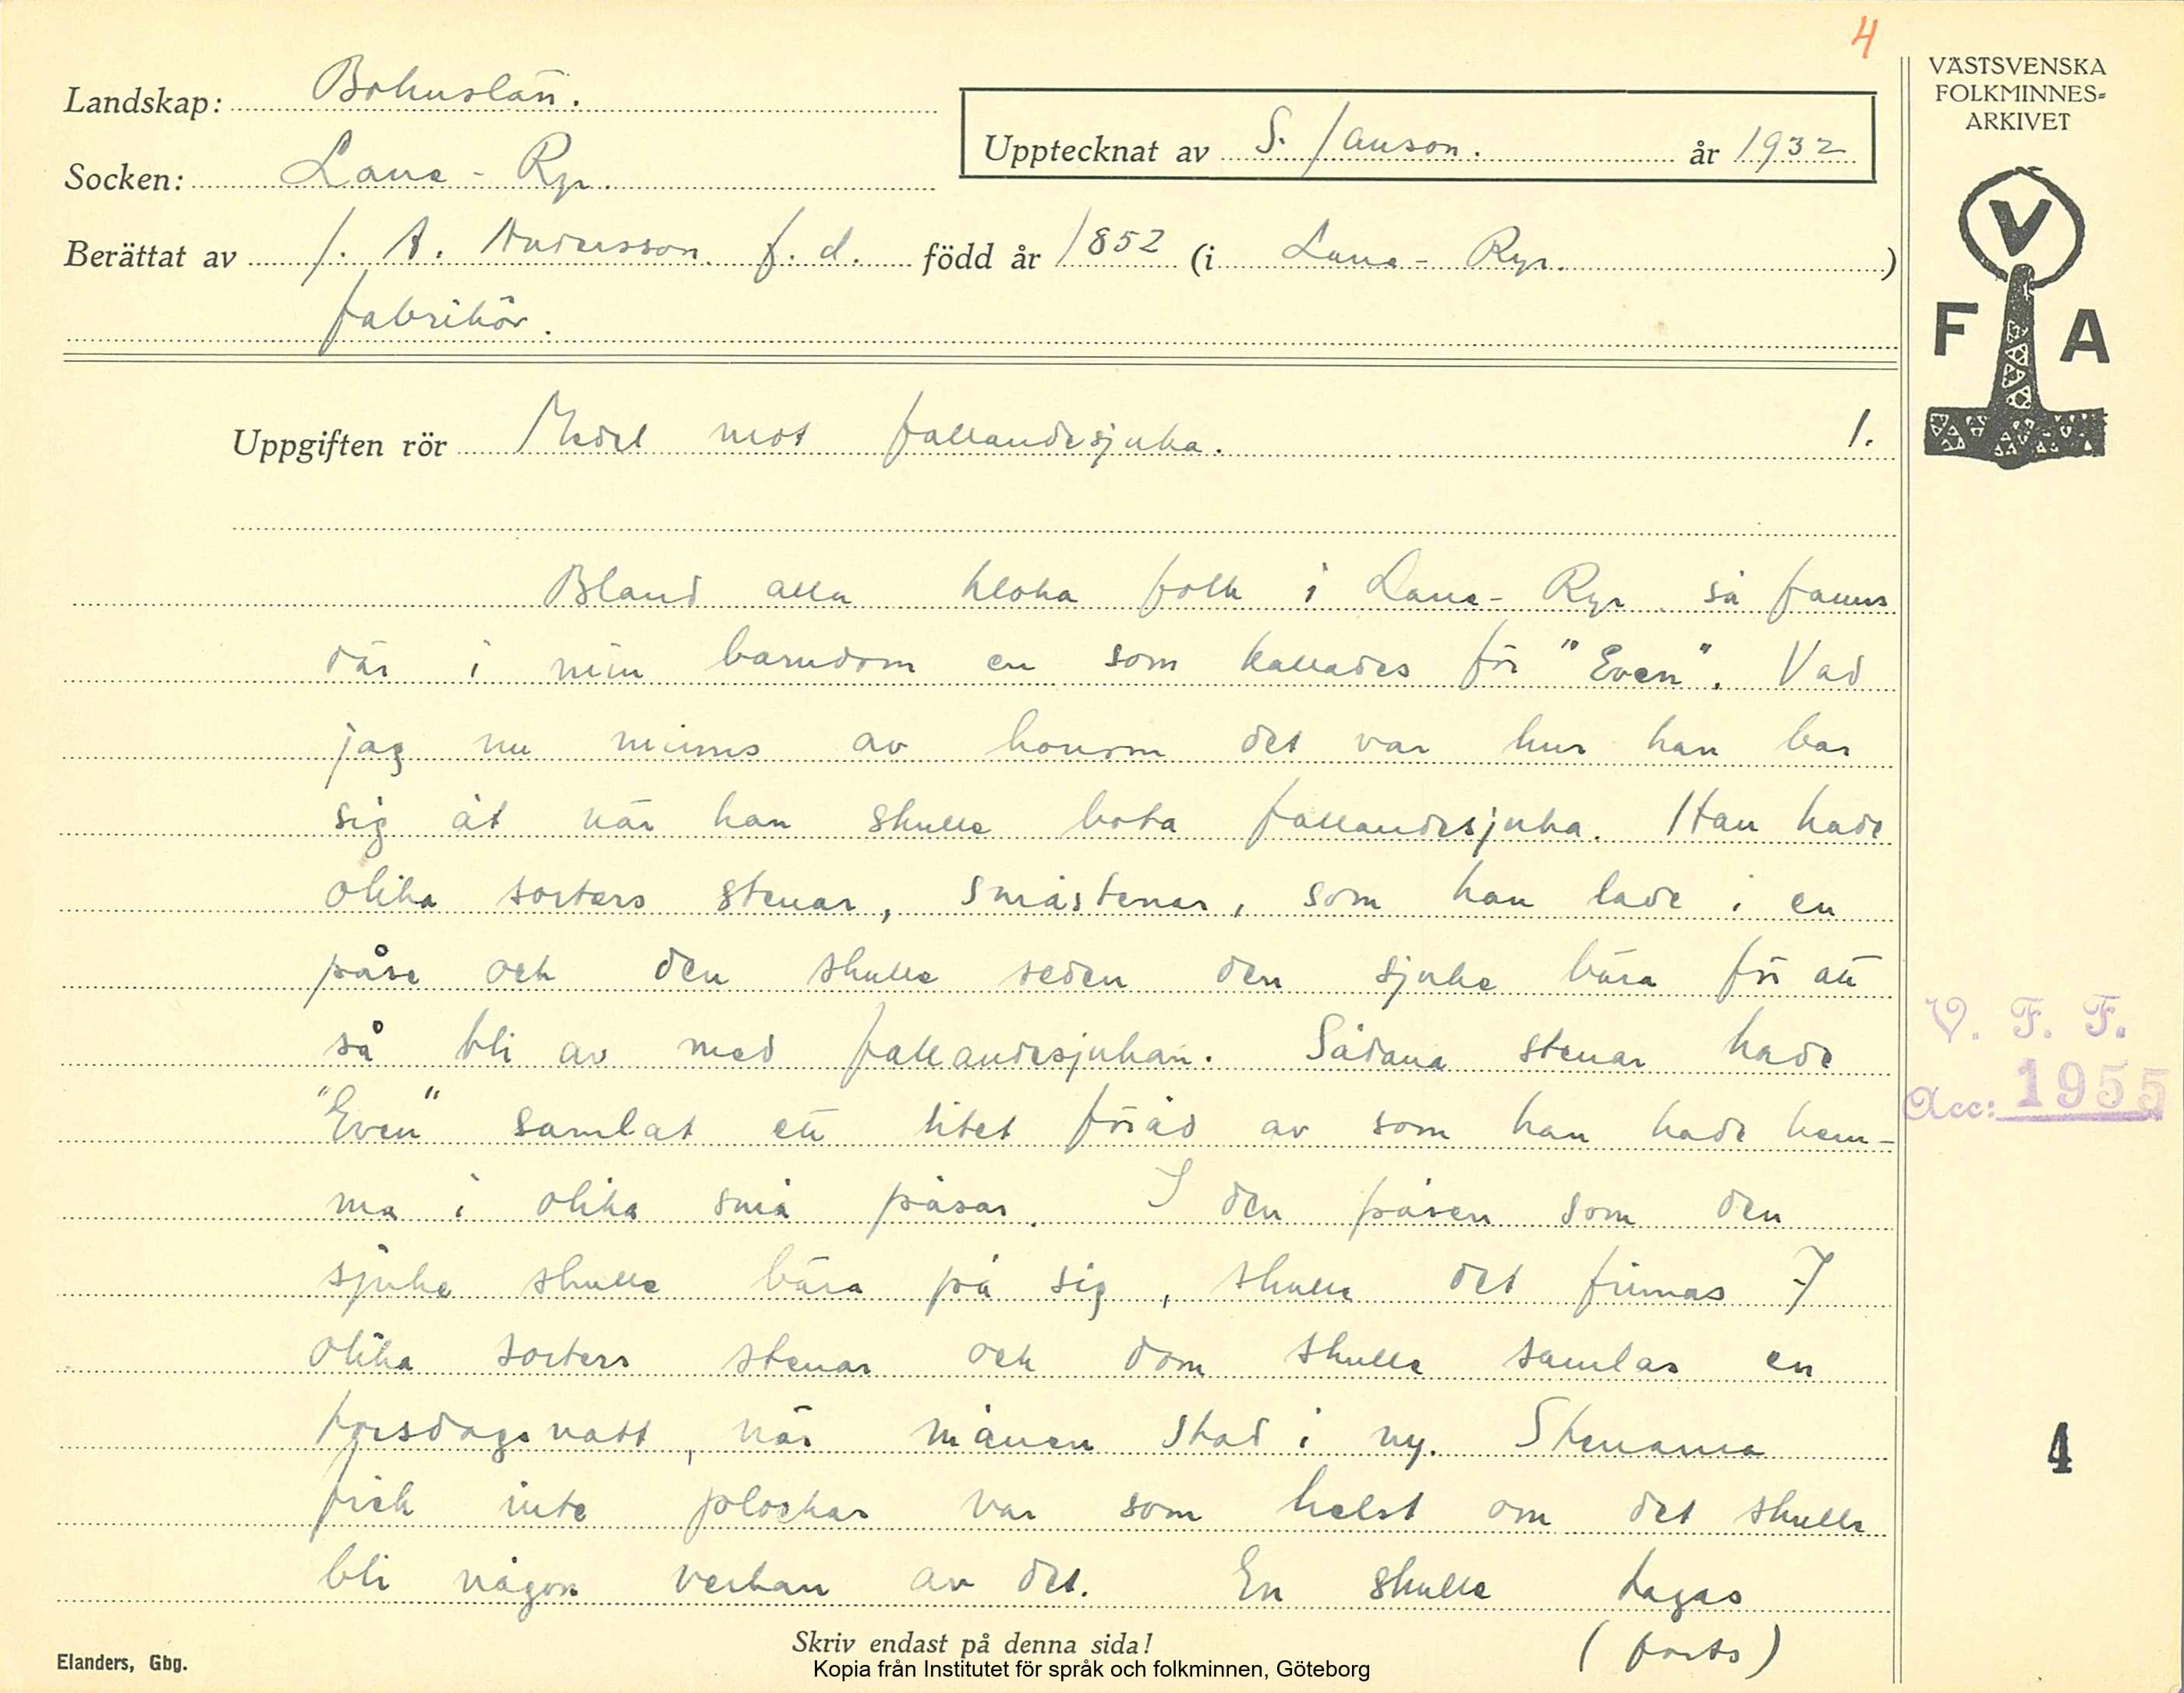 4
Landskap: Bohuslän.
Socken: Lane-Ryr.
Upptecknat av S. Janson. år 1932
Berättat av J. A. Andersson f. d. född år 1852 (i Lane-Ryr.)
fabrikör.
VÄSTSVENSKA
FOLKMINNES=
ARKIVET
V
F A
Uppgiften rör Medel mot fallandesjuka. 1.
Bland alla kloka folk i Lane-Ryr så fanns
där i min barndom en som kallades för "Even". Vad
jag nu minns av honom det var hur han bar
sig åt när han skulle bota fallandesjuka. Han hade
olika sorters stenar, småstenar, som han lade i en
påse och den skulle seden den sjuke bära för att
så bli av med fallandesjukan. Sådana stenar hade
"Even" samlat ett litet föråd av som han hade hem-
ma i olika små påsar. I den påsen som den
sjuke skulle bära på sig, skulle det finnas 7
olika sorters stenar och dom skulle samlas en
torsdagsnatt, när månen stod i ny. Stenarna
fick inte plockas var som helst om det skulle
bli någon verkan av det. En skulle tagas
(forts)
V. F. F.
Acc: 1955
4
Skriv endast på denna sida!
Elanders, Gbg.
Kopia från Institutet för språk och folkminnen, Göteborg